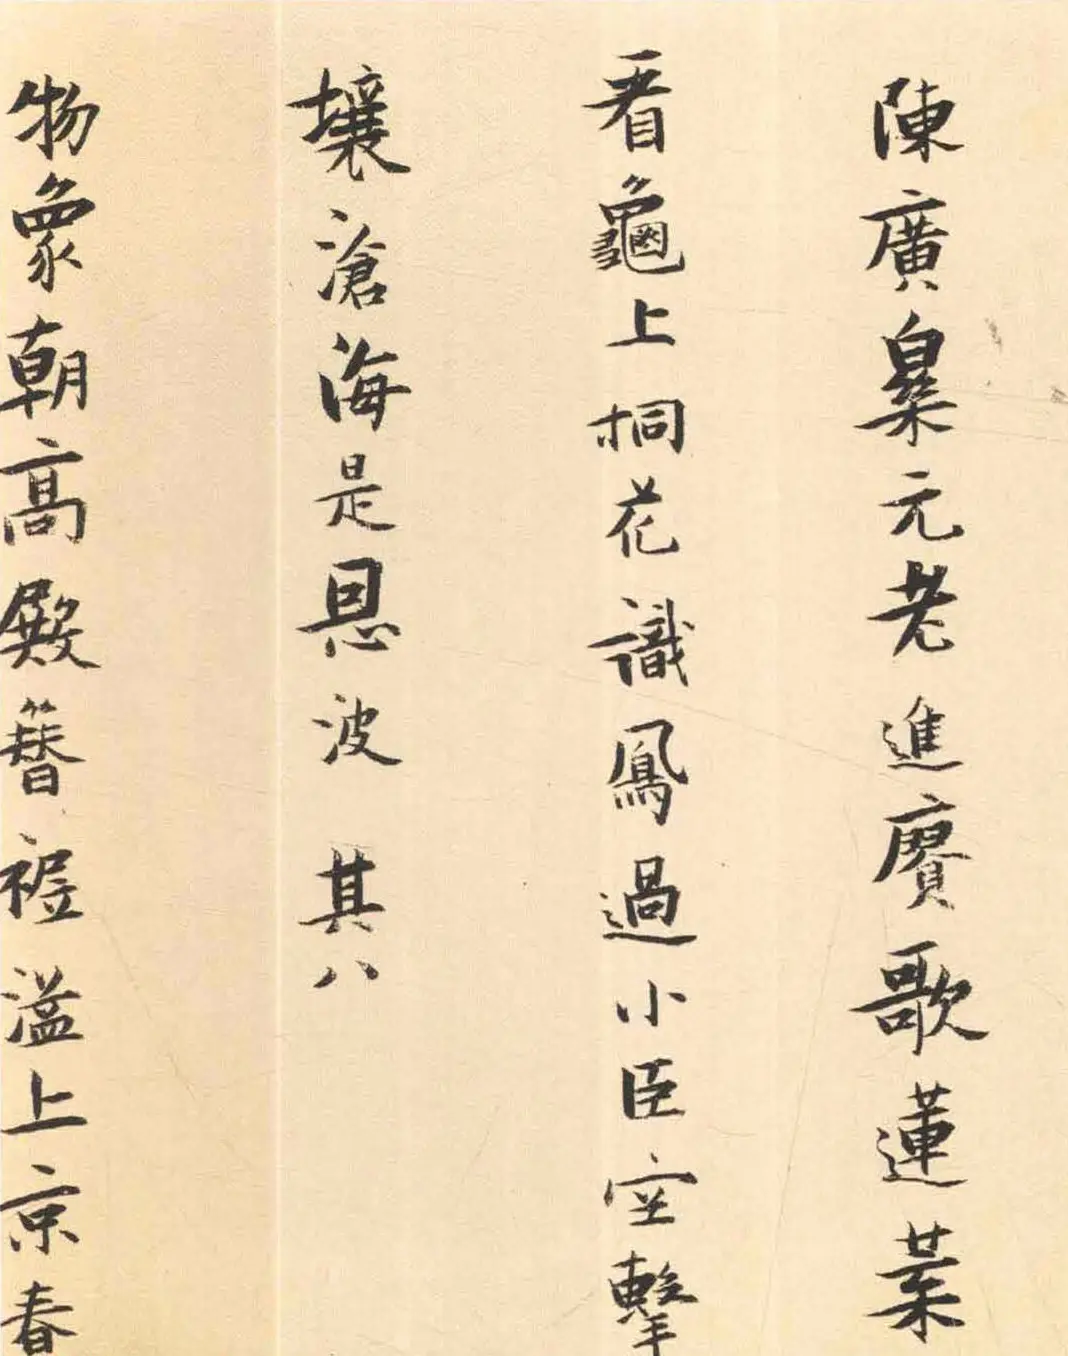 陳廣樂元老進賡歌蓮葉
看龜上桐花識鳳過小臣空擊
壤滄海是恩波 其八
物象朝高殿簪裾溢上京春